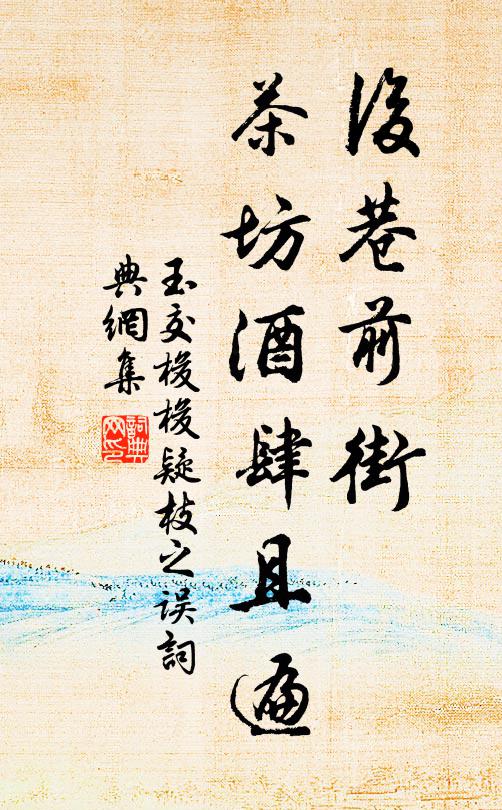 後巷前街
茶坊酒肆且遍
玉交梭梭疑枝之误詞
典網集
詞典网印